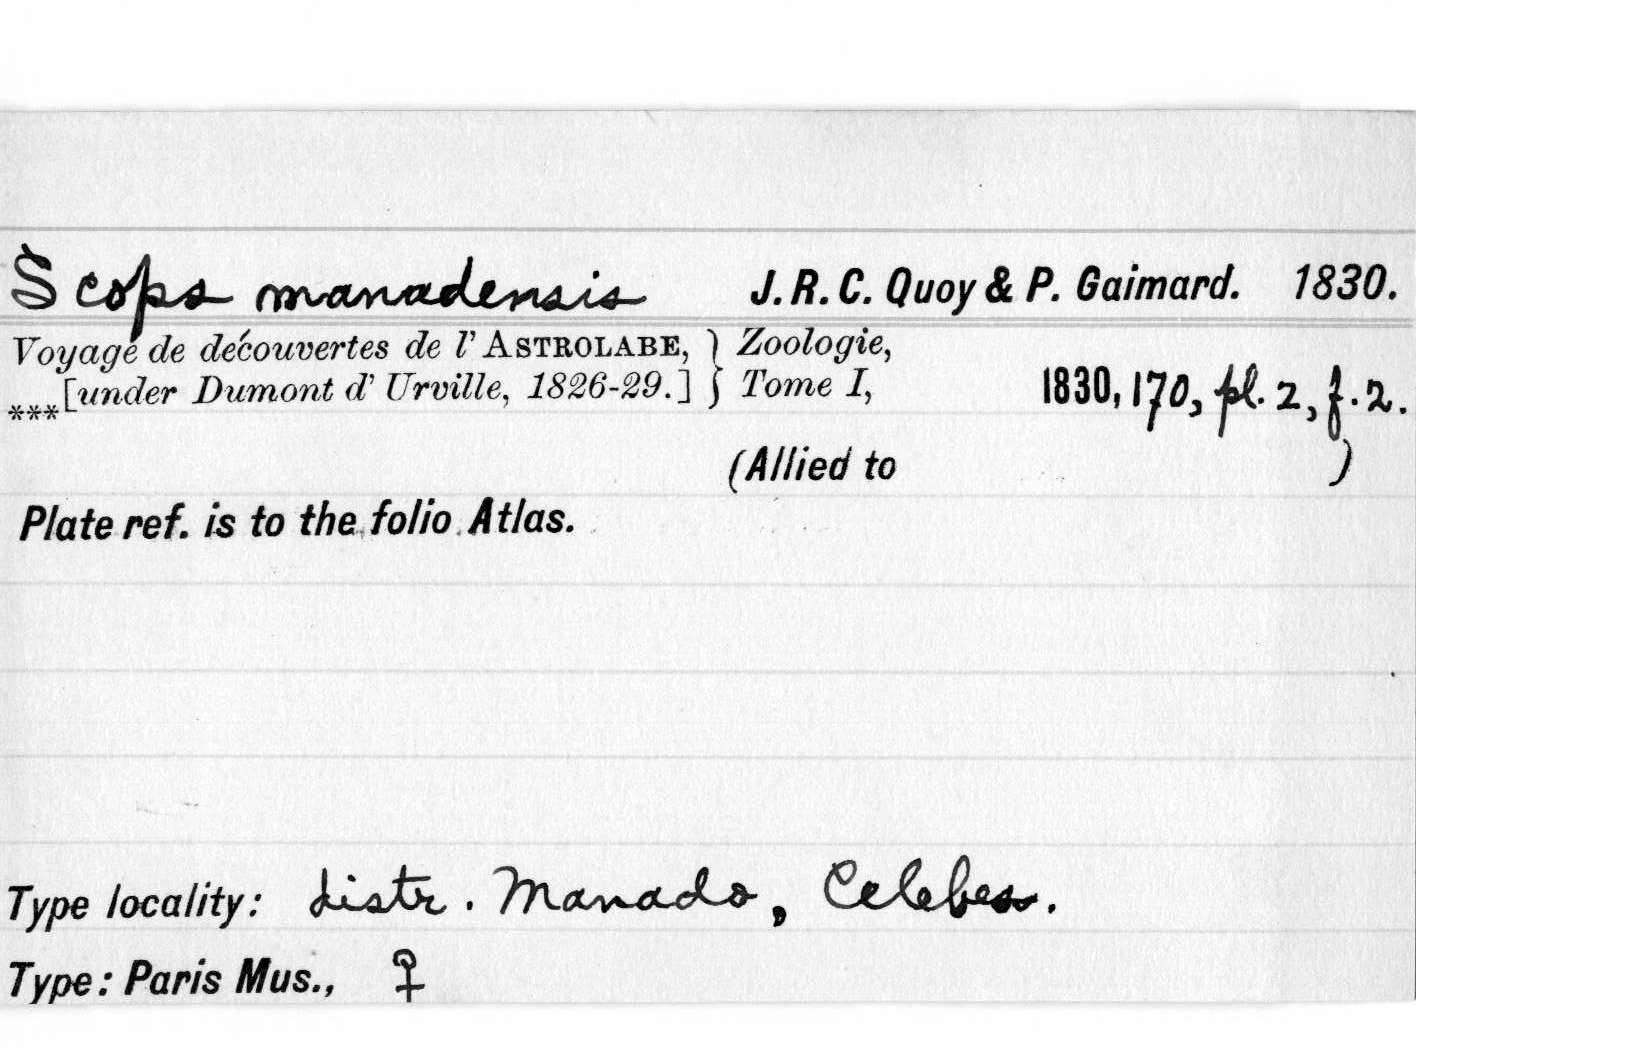 Scops manadensis J. R. C. Quoy & P. Gaimard. 1830.
Voyage de découvertes de l' ASTROLABE, } Zoologie,
***[under Dumont d' Urville, 1826-29.] } Tome I, 1830, 170, pl. 2, f. 2.
(Allied to )
Plate ref. is to the folio Atlas.
Type locality: distr. Manado, Celebes.
Type: Paris Mus., ♀